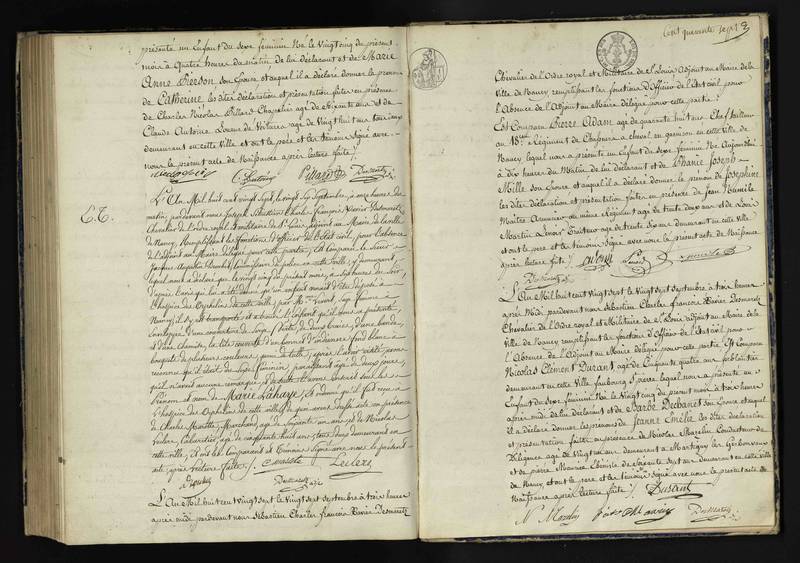 présenté un Enfant du sexe féminin Né le Vingt cinq du présent
mois à Quatre heures du matin, de lui déclarant et de Marie
Anne Pierson son Epouse et auquel il a déclaré donner le prénom
de Catherine les dites déclaration et présentation faites en présence
de Charles Nicolas Billard Chapelier agé de soixante ans et de
Claude Antoine Loueur de Voitures agé de Vingt huit ans tous deux
demeurant en cette Ville et ont le pere et les témoins signé avec
nous le présent acte de Naissance après lecture faite /.
L'An Mil huit cent vingt Sept, le vingt Sept Septembre, à onze heures du
matin, pardevant nous Sébastien Charles François Xavier Desmaretz
Chevalier de l'ordre royal et militaire de St Louis, adjoint au Maire de la ville
de Nancy, Remplissant les fonctions d'officier de l'état civil, pour l'absence
de l'adjoint au Maire délégué pour cette partie, Est Comparu le Sieur
Jacques Augustin commissaire de police en cette ville, y demeurant,
lequel nous a déclaré que le vingt cinq du présent mois, à sept heures du soir,
d'après l'avis qui lui a été donné qu'un enfant venait d'être déposé à
l'hospice des Orphelins de cette ville, par Mme sage femme à
Nancy, il s'y est transporté et a trouvé l'enfant qu'il nous a présenté,
enveloppé d'une couverture de laine verte, de deux langes, d'une bande,
et d'une chemise, la tête couverte d'un bonnet d'indienne fond blanc à
bouquets de plusieurs couleurs, garni de tulle; après l'avoir visité, avons
reconnu qu'il était du sexe féminin, paraissant agé de deux jours,
qu'il n'avait aucune remarque, et de suite il avons
Prénom et nom de Marie Lahaye, et ordonné qu'il fut reçu à
l'hospice des Orphelins de cette ville, de quoi avons dressé acte en présence
de Charles Marotte, Marchand, agé de soixante un ans, et de Nicolas
Leclerc, Cabaretier, agé de cinquante huit ans, tous deux demeurant en
cette ville, et ont le Comparant et témoins signé avec nous le présent
acte, après lecture faite /. C Marotte Leclerc
Desmaretz
L'An Mil huit cent vingt sept le vingt sept septembre à trois heures
après midi pardevant nous Sébastien Charles françois Xavier Desmaretz
Cent quarante sept
Chevalier de l'Ordre royal et Militaire de St Louis Adjoint au Maire de la
Ville de Nancy remplissant les fonctions d'Officier de l'Etat civil pour
l'Absence de l'Adjoint au Maire délégué pour cette partie.
Est Comparu Pierre Adam agé de quarante huit ans Chef tailleur
au 18me Régiment de Chasseurs à cheval en garnison en cette Ville de
Nancy lequel nous a présenté un Enfant du sexe féminin Né Aujourd'hui
à Dix heures du Matin de lui déclarant et de Marie Joseph
Mille son Epouse et auquel il a déclaré donner le prénom de Josephine
les dites déclaration et présentation faites en présence de Jean Numile
Maître Armurier au même Régiment agé de trente deux ans et de Louis
Martin Lenoir Traiteur agé de trente six ans demeurant en cette Ville
et ont le pere et les témoins signé avec nous le présent acte de Naissance
après lecture faite /.
Desmaretz
L'An Mil huit cent vingt sept le vingt sept septembre à trois heures
après Midi pardevant nous Sébastien Charles françois Xavier Desmaretz
Chevalier de l'Ordre royal et Militaire de St Louis adjoint au Maire de la
Ville de Nancy remplissant les fonctions d'Officier de l'Etat civil pour
l'Absence de l'Adjoint au Maire délégué pour cette partie Est Comparu
Nicolas Clément Durant, agé de Cinquante quatre ans ferblantier
demeurant en cette Ville faubourg St pierre lequel nous a présenté un
Enfant du sexe féminin Né le Vingt cinq du présent mois à trois heures
après midi de lui déclarant et de Barbe Dechanet son Epouse et auquel
il a déclaré donner les prénoms de Jeanne Emélie les dites déclaration
et présentation faites en présence de Nicolas Marelin Conducteur de
Diligence agé de vingt six ans demeurant à Martigny les Gerbonvaux
et de pierre Maurice Ebeniste de soixante sept ans demeurant en cette Ville
de Nancy, et ont le pere et les témoins signé avec nous le présent acte de
Naissance après lecture faite /. Durant
Desmaretz